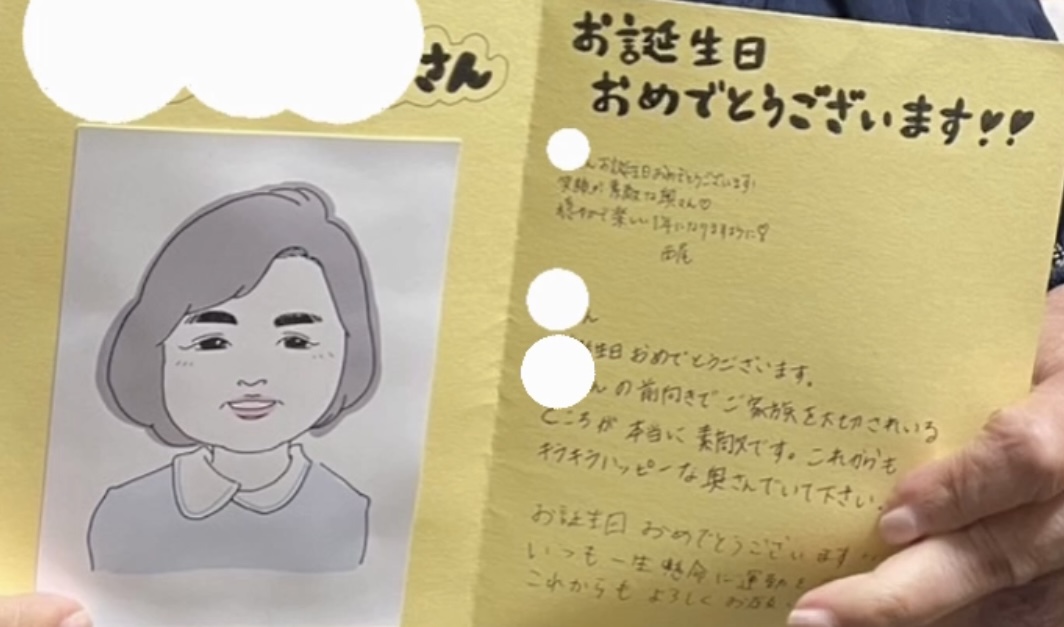 さん
お誕生日
おめでとうございます!!
んお誕生日おめでとうございます!
笑顔が素敵な奥さん♡
穏やかで楽しい1年になりますように♡
西尾
ん
生日 おめでとうございます。
んの前向きで ご家族を大切されいる
ところが 本当に 素敵です。これからも
キラキラハッピーな奥さんでいて下さい。
お誕生日 おめでとうございます
いつも一生懸命に運動を
これからも よろしく お願い